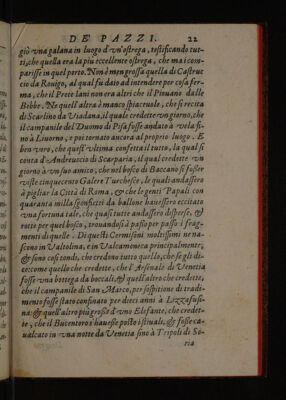 DE' PAZZI. 22
giò vna galana in luogo d'vn'ostrega, testificando tut-
ti, che quella era la più eccellente ostrega, che mai com-
parisse in quel porto. Non è men grossa quella di Castruc
cio da Rouigo, al qual fù dato ad intendere per cosa fer-
ma, che il Prete Iani non era altri che il Piouano dalle
Bebbe. Ne quell'altra è manco spiaceuole, che si recita
di Scarlino da Viadana, il quale credette vn giorno, che
il campanile del Duomo di Pisa fosse andato à vela fi-
nò à Liuorno, e poi tornato ancora al proprio luogo. E
ben vero, che quest'vltima confetta il tutto, la qual si
conta d'Andreuccio di Scarparia, il qual credette vn
giorno à vn suo amico, che nel bosco di Baccano si fosser
viste cinquecento Galere Turchesche, le quali andassero
à pigliar la Città di Roma, & che le genti Papali con
quaranta milla sgonfietti da ballone hauessero eccitato
vna fortuna tale, che quasi tutte andassero disperse, &
rotte per quel bosco, trouandosi à passo per passo i frag-
menti di quelle. Di questi Cermisoni moltissimi ne na-
scono in Valtolina, e in Valcamonica principalmente,
& sono così tondi, che credono tutto quello, che se gli di-
ce: come quello che credette, che l'Arsenale di Venetia
fosse vna bottega da boccali, & quell'altro che credette,
che il campanile di San Marco, per sospitione di tradi-
mento fosse stato confinato per dieci anni à Lizzafusi-
na: & quell'altro più grosso d'vno Elefante, che credet-
te, che il Bucentoro hauesse posto i stiuali, & fosse ca-
ualcato in vna notte da Venetia sino à Tripoli di So-
ria